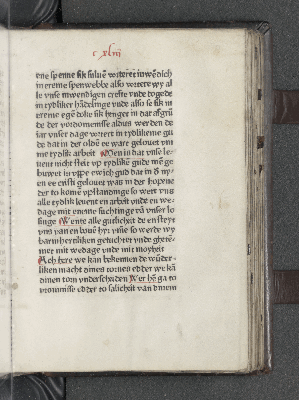 c xlvij
ene spenne sik suluē vorteret inwēdich
in ereme spenwebbe also vortere wy al
le vnse inwendigen crefte vnde togede
in tydliker hādelinge vnde also se sik in
ereme egē doke sik henget in dat afgrū
de der vordomenisse aldus werden de
iar vnser dage vortert in tydlikeme gu
de dat in der oldē ee ware gelouet vm
me tydlik arbeit Men in dat vnse le
uent nicht steit vp tydlikē gude mē ge
buwet is vppe ewich gud dat in d ny
en ee cristi gelouet was in der hopene
der to kome vpstandinge so wert vns
alle tydlik leuent en arbeit vnde en we
dage mit enente suchtinge vā vnser lo
singe Wente alle gutlicheit de en styt
vns van en bouē hyr vmme so werde wy
barmherteliken getuchtet vnde ghete
met mit wedage vnde mit moyheit
Ach here we kan bekennen de wūder
liken macht dines tornes edder we kā
dinen torn vnderscheiden Wer he ga to
vromisse edder to salicheit van dynem